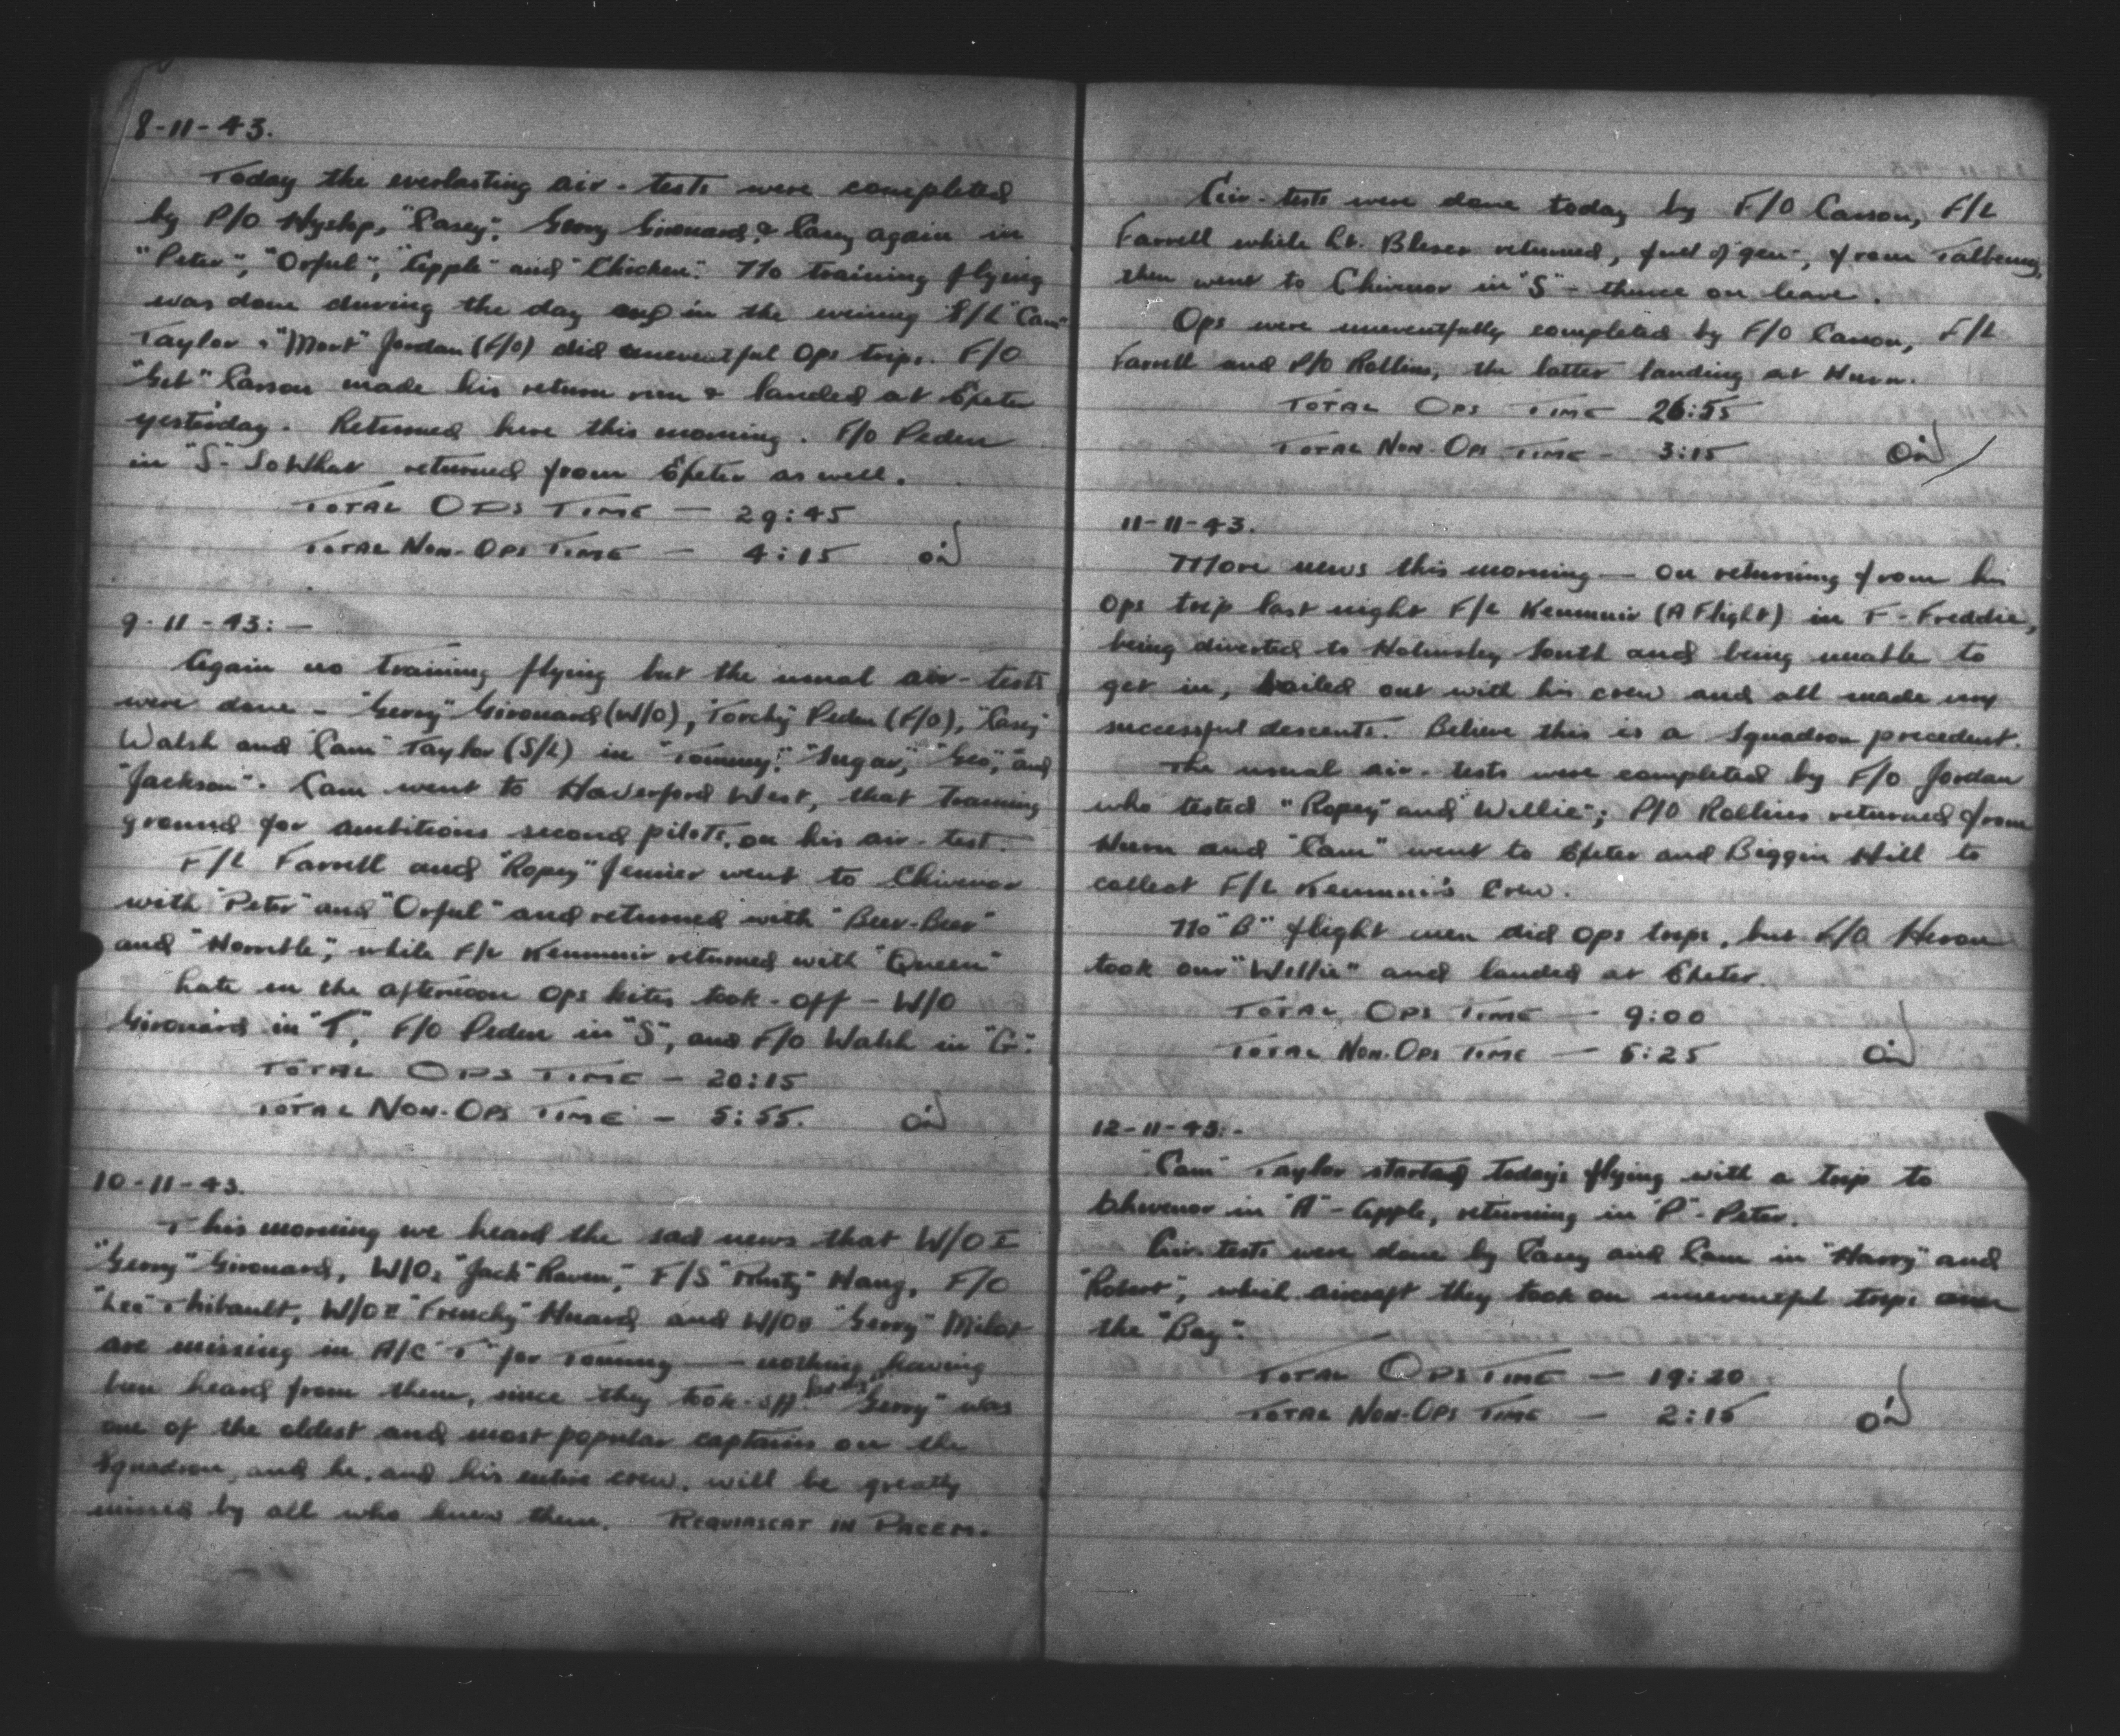 8-11-43.
Today the everlasting air-tests were completed
by P/O Hyslop, "Casey", Gerry Girouard, & Casey again in
"Peter", "Orful", "Apple" and "Chicken". No training flying
was done during the day and in the evening S/L "Cam"
Taylor & "Mort" Jordan (F/O) did uneventful Ops trips. F/O
Carson made his return run & landed at Exeter
yesterday. Returned here this morning. F/O Peden
in "S"-SoWhat returned from Exeter as well.
TOTAL OPS TIME — 29:45
TOTAL NON-OPS TIME — 4:15
9-11-43:—
Again no training flying but the usual air-tests
were done - "Gerry" Girouard (W/O), "Torchy" Peden (F/O), "Casey"
Walsh and "Cam" Taylor (S/L) in "Tommy", "Sugar", "Geo", and
"Jackson". Cam went to Haverford West, that training
ground for ambitious second pilots, on his air-test.
F/L Farrell and "Ropey" Jenner went to Chivenor
with "Peter" and "Orful" and returned with "Beer-Beer"
and "Horrible", while F/L Kemmuir returned with "Queen"
Late in the afternoon Ops kites took-off — W/O
Girouard in "T", F/O Peden in "S", and F/O Walsh in "G".
TOTAL OPS TIME — 20:15
TOTAL NON-OPS TIME — 5:55.
10-11-43.
This morning we heard the sad news that W/O I
"Gerry" Girouard, W/O2 "Jack" Raven, F/S "Rusty" Haug, F/O
"Leo" Thibault, W/O II "Frenchy" Huard and W/O II "Gerry" Milot
are missing in A/C "T" for Tommy — nothing having
been heard from them, since they took-off. "Gerry" was
one of the oldest and most popular captains on the
Squadron, and he, and his entire crew, will be greatly
missed by all who knew them. REQUIASCAT IN PACEM.
Air-tests were done today by F/O Carson, F/L
Farrell while Lt. Bleser returned, full of "gen", from Talbenny,
then went to Chivenor in "S" - thence on leave.
Ops were uneventfully completed by F/O Carson, F/L
Farrell and P/O Rollins, the latter landing at Hurn.
TOTAL OPS TIME 26:55
TOTAL NON-OPS TIME — 3:15
11-11-43.
More news this morning — on returning from his
Ops trip last night F/L Kemmuir (A Flight) in F-Freddie,
being diverted to Holmsley South and being unable to
get in, bailed out with his crew and all made
successful descents. Believe this is a Squadron precedent.
The usual air-tests were completed by F/O Jordan
who tested "Ropey" and "Willie"; P/O Rollins returned from
Hurn and "Cam" went to Exeter and Biggin Hill to
collect F/L Kemmuir's Crew.
No "B" flight men did Ops trips, but F/O Heron
took our "Willie" and landed at Exeter.
TOTAL OPS TIME — 9:00
TOTAL NON-OPS TIME — 5:25
12-11-43:-
"Cam" Taylor started today's flying with a trip to
Chivenor in "A"-Apple, returning in "P"-Peter.
Air-tests were done by Casey and Cam in "Harry" and
"Robert", which aircraft they took on uneventful trips over
the "Bay".
TOTAL OPS TIME — 19:20
TOTAL NON-OPS TIME — 2:15